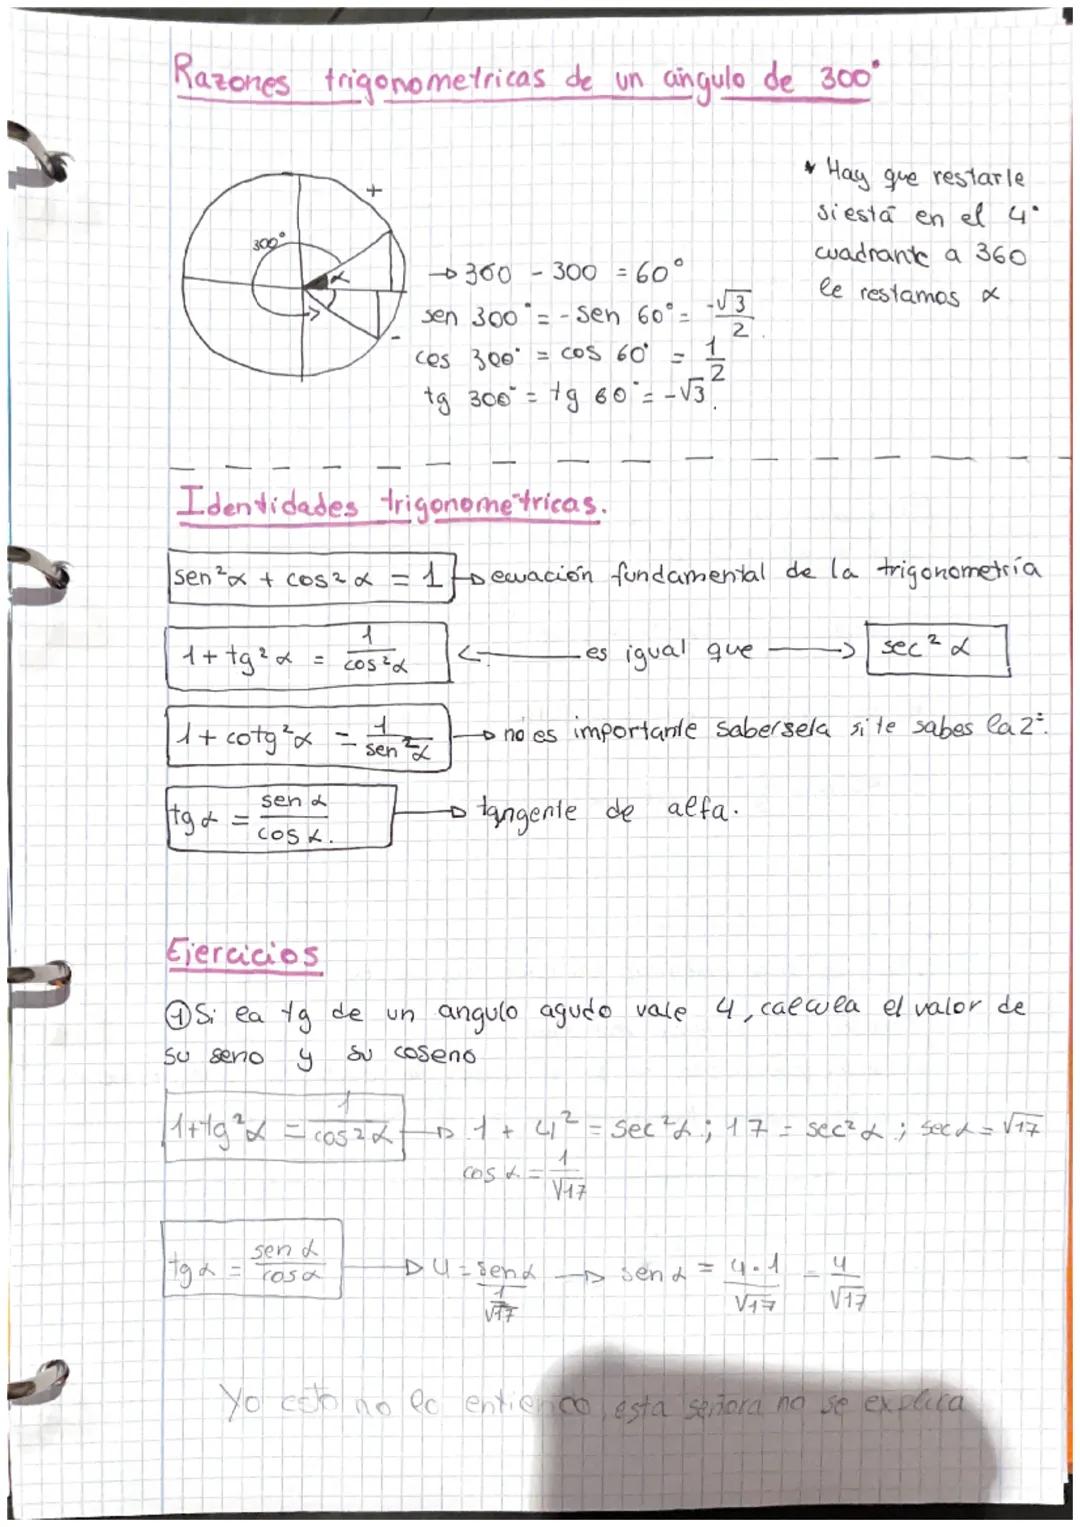 Razones trigonometricas de un ángulo de 300°
+
300°
α
-
* Hay que restarle
si está en el 4°
cuadrante a 360
le restamos α
→ 360 - 300 = 60°
sen 300° = - sen 60° = -√3/2
cos 300° = cos 60° = 1/2
tg 300° = tg 60° = -√3.
Identidades trigonométricas.
sen²α + cos²α = 1 → ecuación fundamental de la trigonometría
1 + tg²α = 1/cos²α ← es igual que → sec²α
1 + cotg²α = 1/sen²α → no es importante sabersela si te sabes la 2ª.
tg α = sen α/cos α. → tangente de alfa.
Ejercicios
① Si la tg de un angulo agudo vale 4, calcula el valor de
su seno y su coseno
1+tg²α = 1/cos²α → 1 + 4² = sec²α ; 17 = sec²α ; sec α = √17
cos α = 1/√17
tg α = sen α/cos α → 4 = sen α/(1/√17) → sen α = 4·1/√17 = 4/√17
Yo esto no lo entiendo, esta señora no se explica